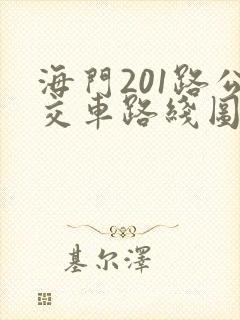 海門201路公
交車路綫圖
基尔澤